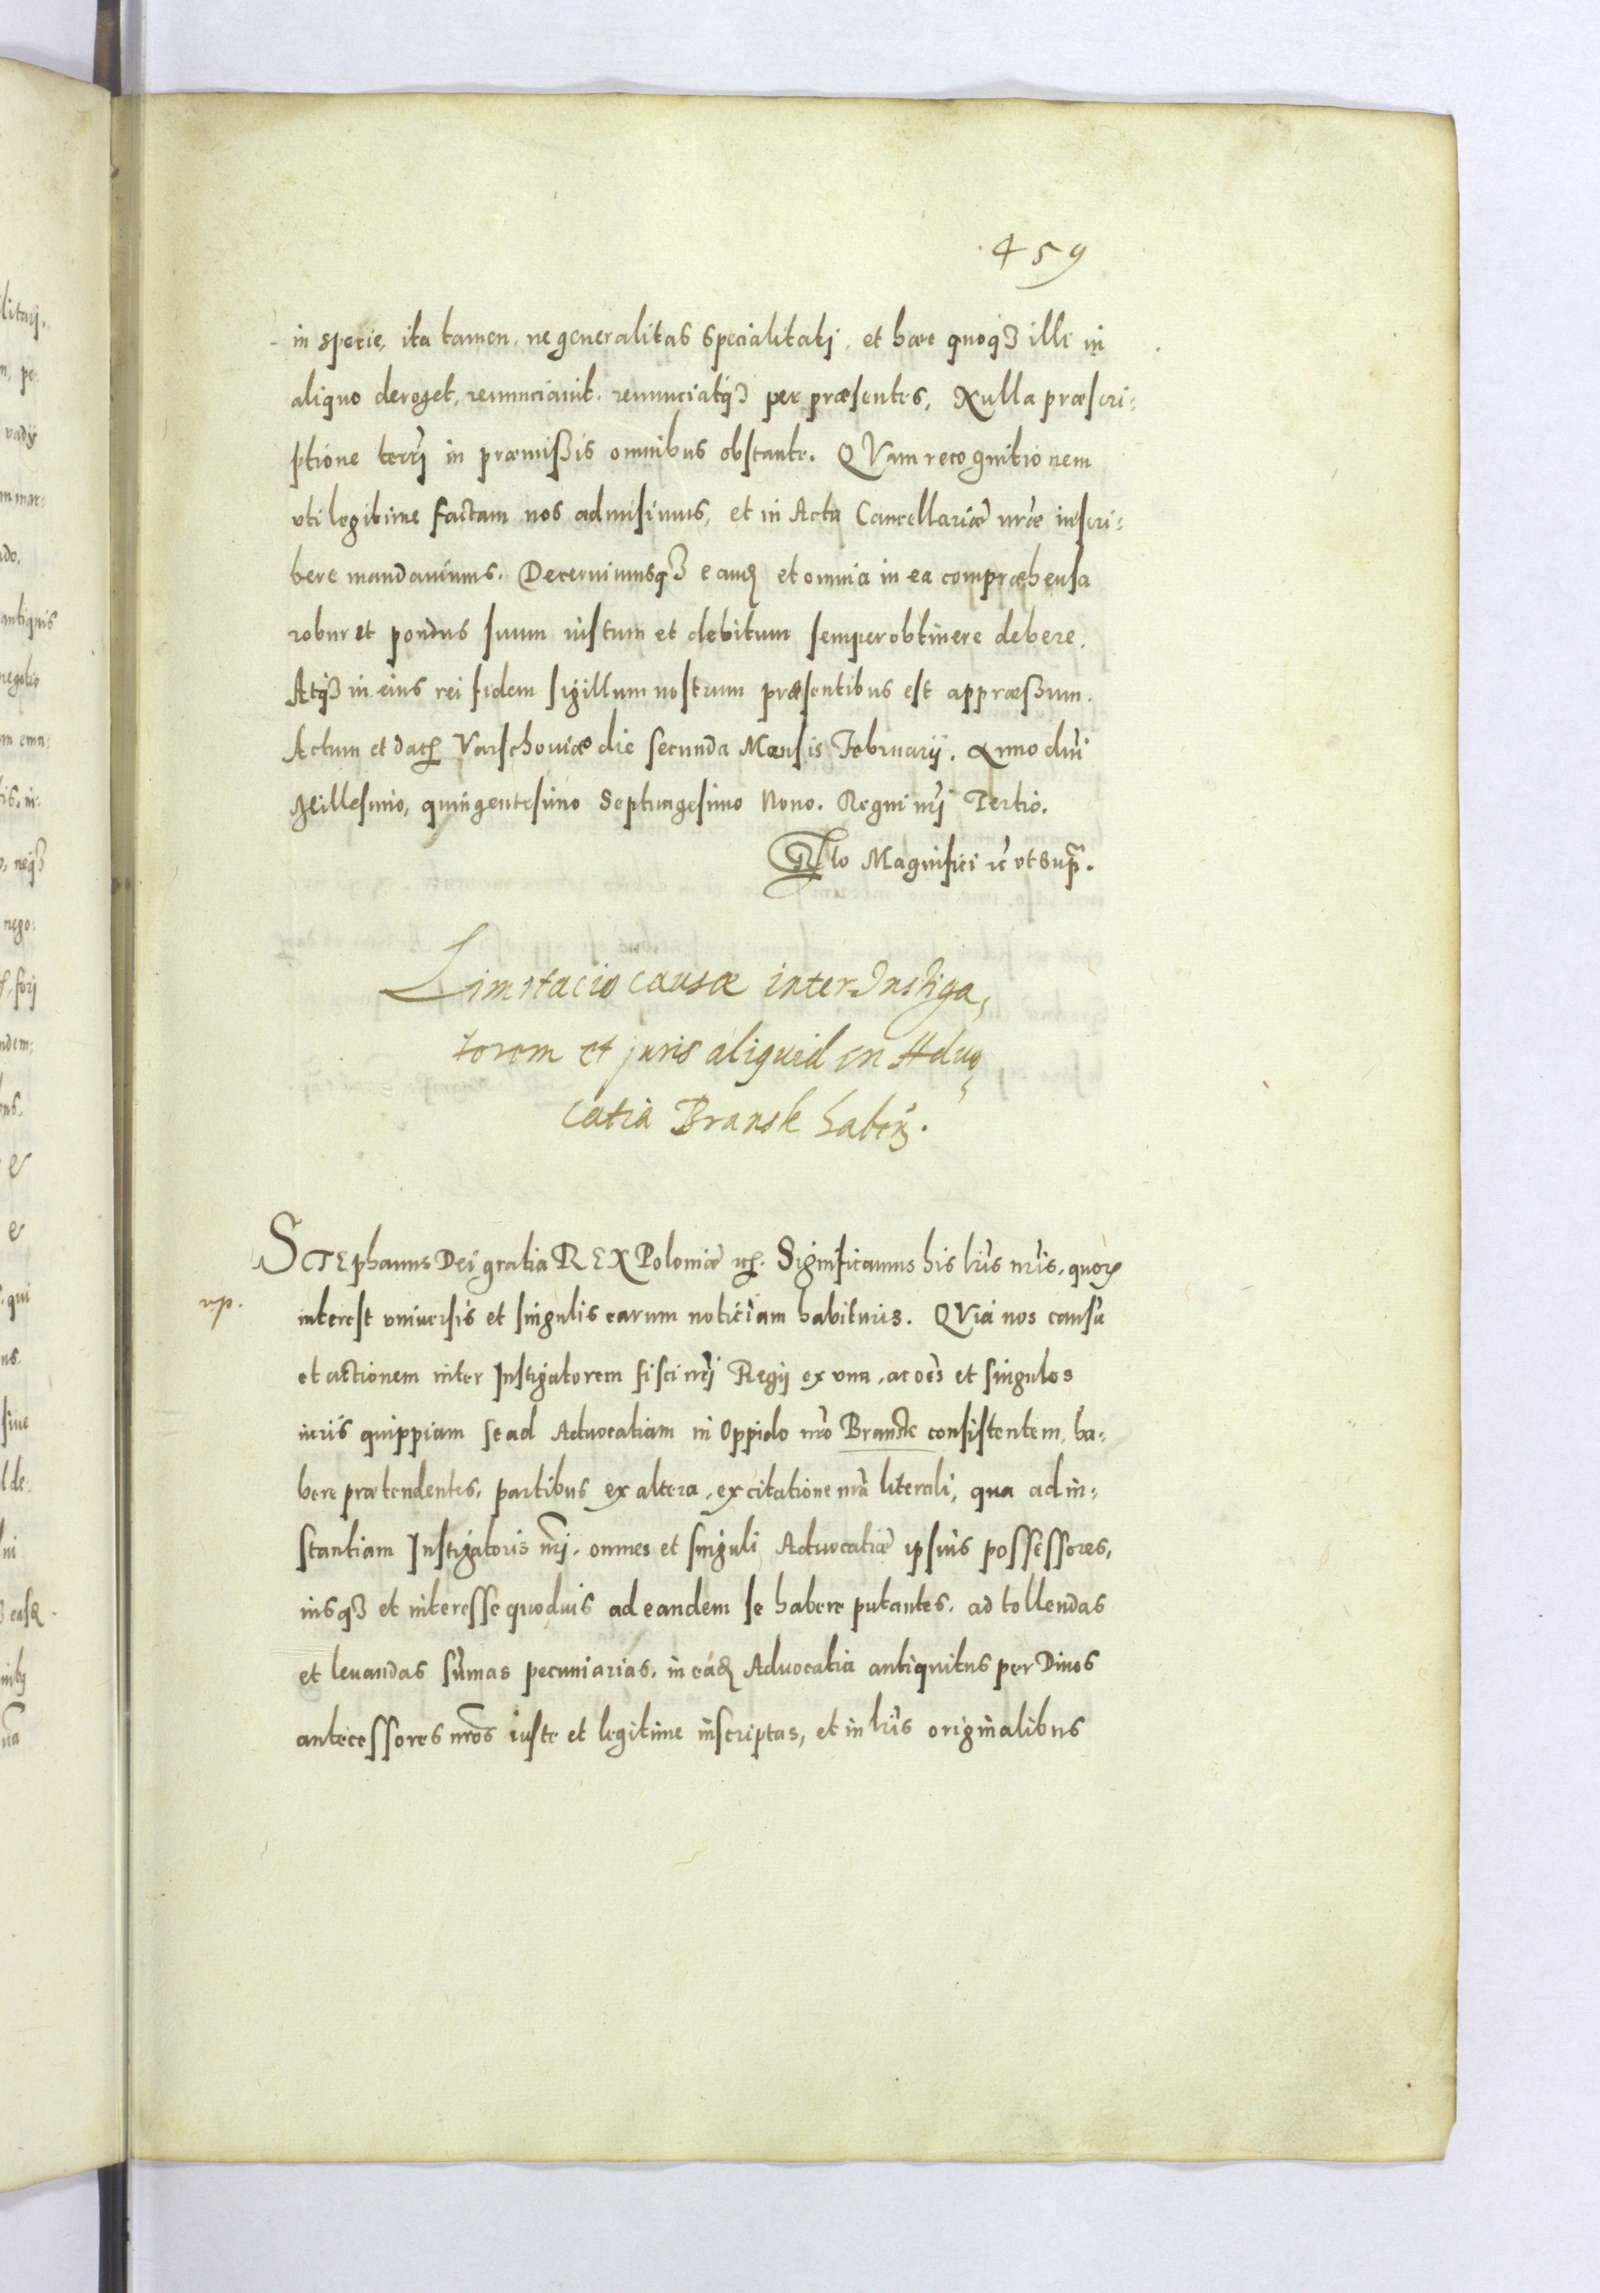 459
in specie, ita tamen, ne generalitas specialitatj, et hæc quoqꝫ illi in
aliquo deroget, renunciauit, renunciatqꝫ per præsentes, Nulla præscri:
ptione terrj in præmißis omnibus obstante. QVam recognitionem
vti legitime factam nos admisimus, et in Acta Cancellariæ nr̃æ inscri:
bere mandauimus. Decernimusqꝫ eandꝫ et omnia in ea compræhensa
robur et pondus suum iustum et debitum semper obtinere debere.
Atqꝫ in eius rei fidem sigillum nostrum præsentibus est appræßum.
Actum et datꝫ Varschouiæ die secunda Mensis Februarij. Anno dni̅
Millesimo, quingentesimo Septuagesimo Nono. Regni nr̃j Tertio.
Rlo Magnifici ꝛc vt supꝛa.
Limitacio causæ inter Instiga,
torem et juris aliquid in Aduo,
catia Bransk haben̄.
STEphanus Dei gratia REX Poloniæ ꝛcꝫ. Significamus his lr̃is nr̃is, quorꝫ
vp.
interest vniuersis et singulis earum noticiam habituris. QVia nos causã
et actionem inter Instigatorem fisci nr̃j Regij ex vna, ac oēs et singulos
iuris quippiam se ad Aduocatiam in Oppido nr̃o Bransk consistentem, ha:
bere prætendentes, partibus ex altera, ex citatione nr̃a literali, qua ad in:
stantiam Instigatoris nr̃j, omnes et singuli Aduocatiæ ipsius possessores,
iusqꝫ et interesse quoduis ad eandem se habere putantes, ad tollendas
et leuandas sum̄as pecuniarias, in eadꝫ Aduocatia antiquitus per Diuos
antecessores nr̃os iuste et legitime inscriptas, et in lr̃is originalibus